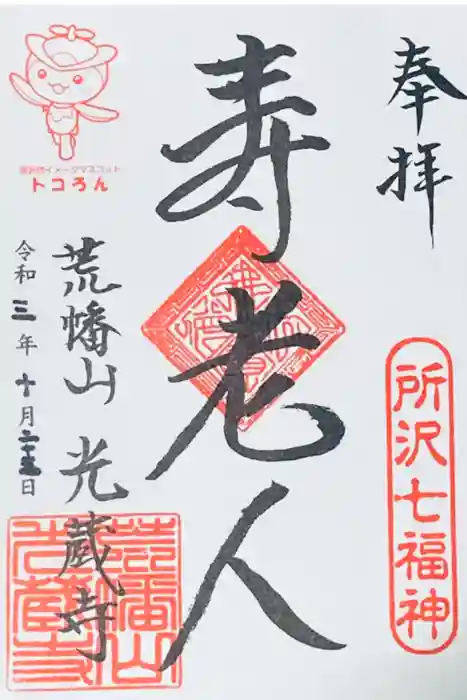 奉拝
所沢七福神
寿老人
荒幡山 光蔵寺
所沢市イメージマスコット
トコろん
令和三年十月二十五日
荒幡山
光蔵寺